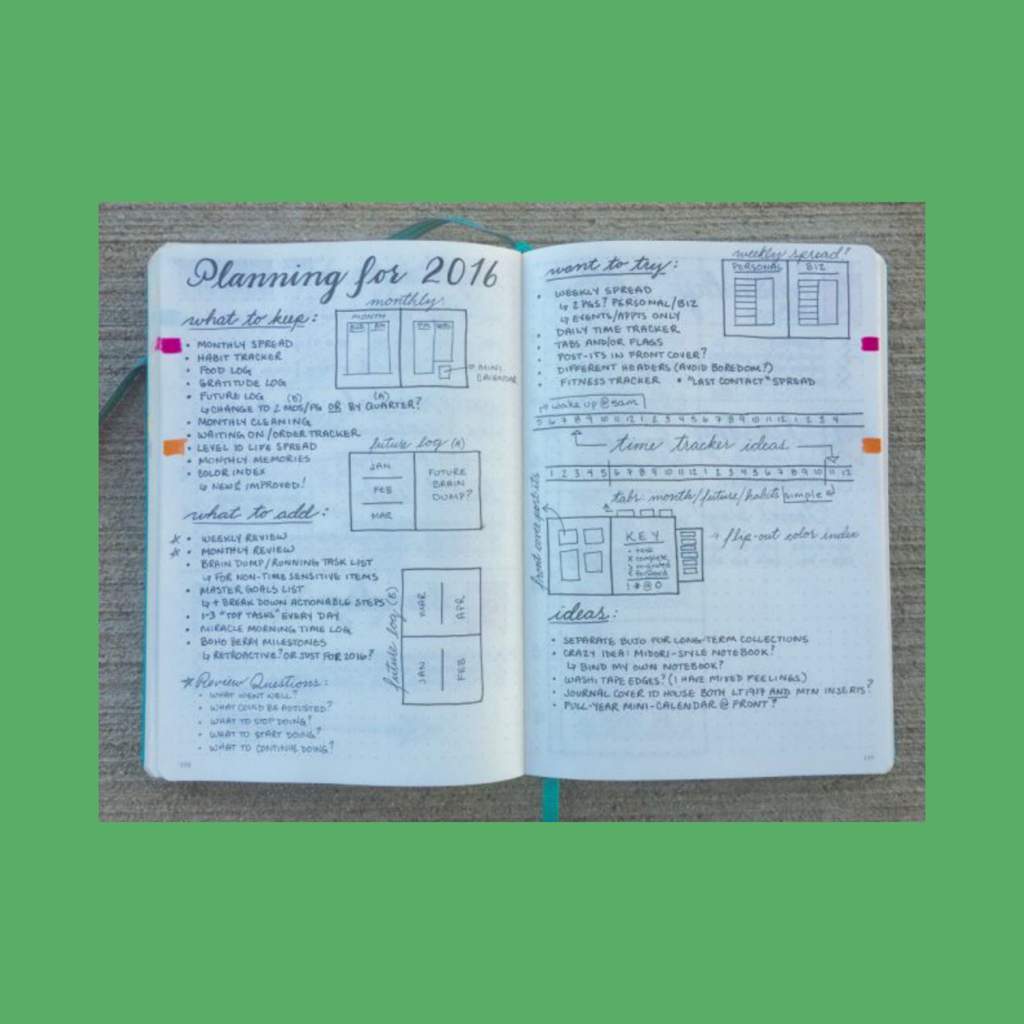 Planning for 2016
monthly:
what to keep:
MONTH
• MONTHLY SPREAD
• HABIT TRACKER
• FOOD LOG
• GRATITUDE LOG
MINI CALENDAR
• FUTURE LOG (B) (A)
↳ CHANGE TO 2 MOS/PG OR BY QUARTER?
• MONTHLY CLEANING
• WAITING ON/ORDER TRACKER
• LEVEL 10 LIFE SPREAD
• MONTHLY MEMORIES
• COLOR INDEX
↳ NEW & IMPROVED!
future log (A)
JAN
FEB
MAR
FUTURE
BRAIN
DUMP?
what to add:
* • WEEKLY REVIEW
* • MONTHLY REVIEW
• BRAIN DUMP/RUNNING TASK LIST
↳ FOR NON-TIME SENSITIVE ITEMS
• MASTER GOALS LIST
↳ + BREAK DOWN ACTIONABLE STEPS
• 1-3 "TOP TASKS" EVERY DAY
• MIRACLE MORNING TIME LOG
• BOHO BERRY MILESTONES
↳ RETROACTIVE? OR JUST FOR 2016?
future log (B)
MAR
APR
JAN
FEB
*Review Questions:
• WHAT WENT WELL?
• WHAT COULD BE ADJUSTED?
• WHAT TO STOP DOING?
• WHAT TO START DOING?
• WHAT TO CONTINUE DOING?
want to try:
weekly spread!
PERSONAL
BIZ
• WEEKLY SPREAD
↳ 2 PGS? PERSONAL/BIZ
↳ EVENTS/APPTS ONLY
• DAILY TIME TRACKER
• TABS AND/OR FLAGS
• POST-ITS IN FRONT COVER?
• DIFFERENT HEADERS (AVOID BOREDOM?)
• FITNESS TRACKER • "LAST CONTACT" SPREAD
wake up @ 5am
5 6 7 8 9 10 11 12 1 2 3 4 5 6 7 8 9 10 11 12 1 2 3 4
time tracker ideas
1 2 3 4 5 6 7 8 9 10 11 12 1 2 3 4 5 6 7 8 9 10 11 12
tabs month/future/habits simple
front cover post-its
KEY
• TASK
X COMPLETE
! * @ O
→ flip-out color index
ideas:
• SEPARATE BUJO FOR LONG-TERM COLLECTIONS
• CRAZY IDEA: MIDORI-STYLE NOTEBOOK?
↳ BIND MY OWN NOTEBOOK?
• WASHI TAPE EDGES? (I HAVE MIXED FEELINGS)
• JOURNAL COVER TO HOUSE BOTH LT1917 AND MTN INSERTS?
• FULL-YEAR MINI-CALENDAR @ FRONT?